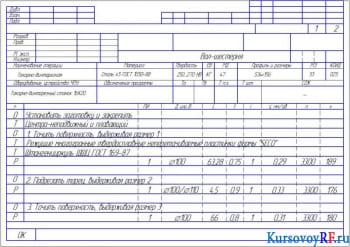 Дубл.
Взам.
Подл.
1 2
Разраб.
Н. контр.
Вал-шестерня
Наименование операции Материал Твердость ЕВ МД Профиль и размеры МЗ КОИД
Токарно-винторезная Сталь 45 ГОСТ 1050-88 кг 47 53 025
Оборудование устройство ЧПУ Обозначение программы То Тв Тп.з Тшт СОЖ
Токарно-винторезный станок 16К20
ПИ D или B L t i S мм/об n V
О Установить заготовку и закрепить
Т Центра-неподвижный и плавающий
О 1. Точить поверхность, выдерживая размер 1
Т Режущие многогранные твердосплавные неперетачиваемые пластинки фирмы "SECO"
Т Штангенциркуль ШЦЦ ГОСТ 169-87
Р 1 ⌀100 63.28 0.75 1 0.29 3300 189
О 2. Подрезать торец, выдерживая размер 2
Р 1 ⌀100/⌀110 4.5 0.9 1 0.33 3300 176
О 3. Точить поверхность, выдерживая размер 3
Р 1 ⌀100 66 0.8 1 0.31 3300 180
ОК
KursovoyRF.ru